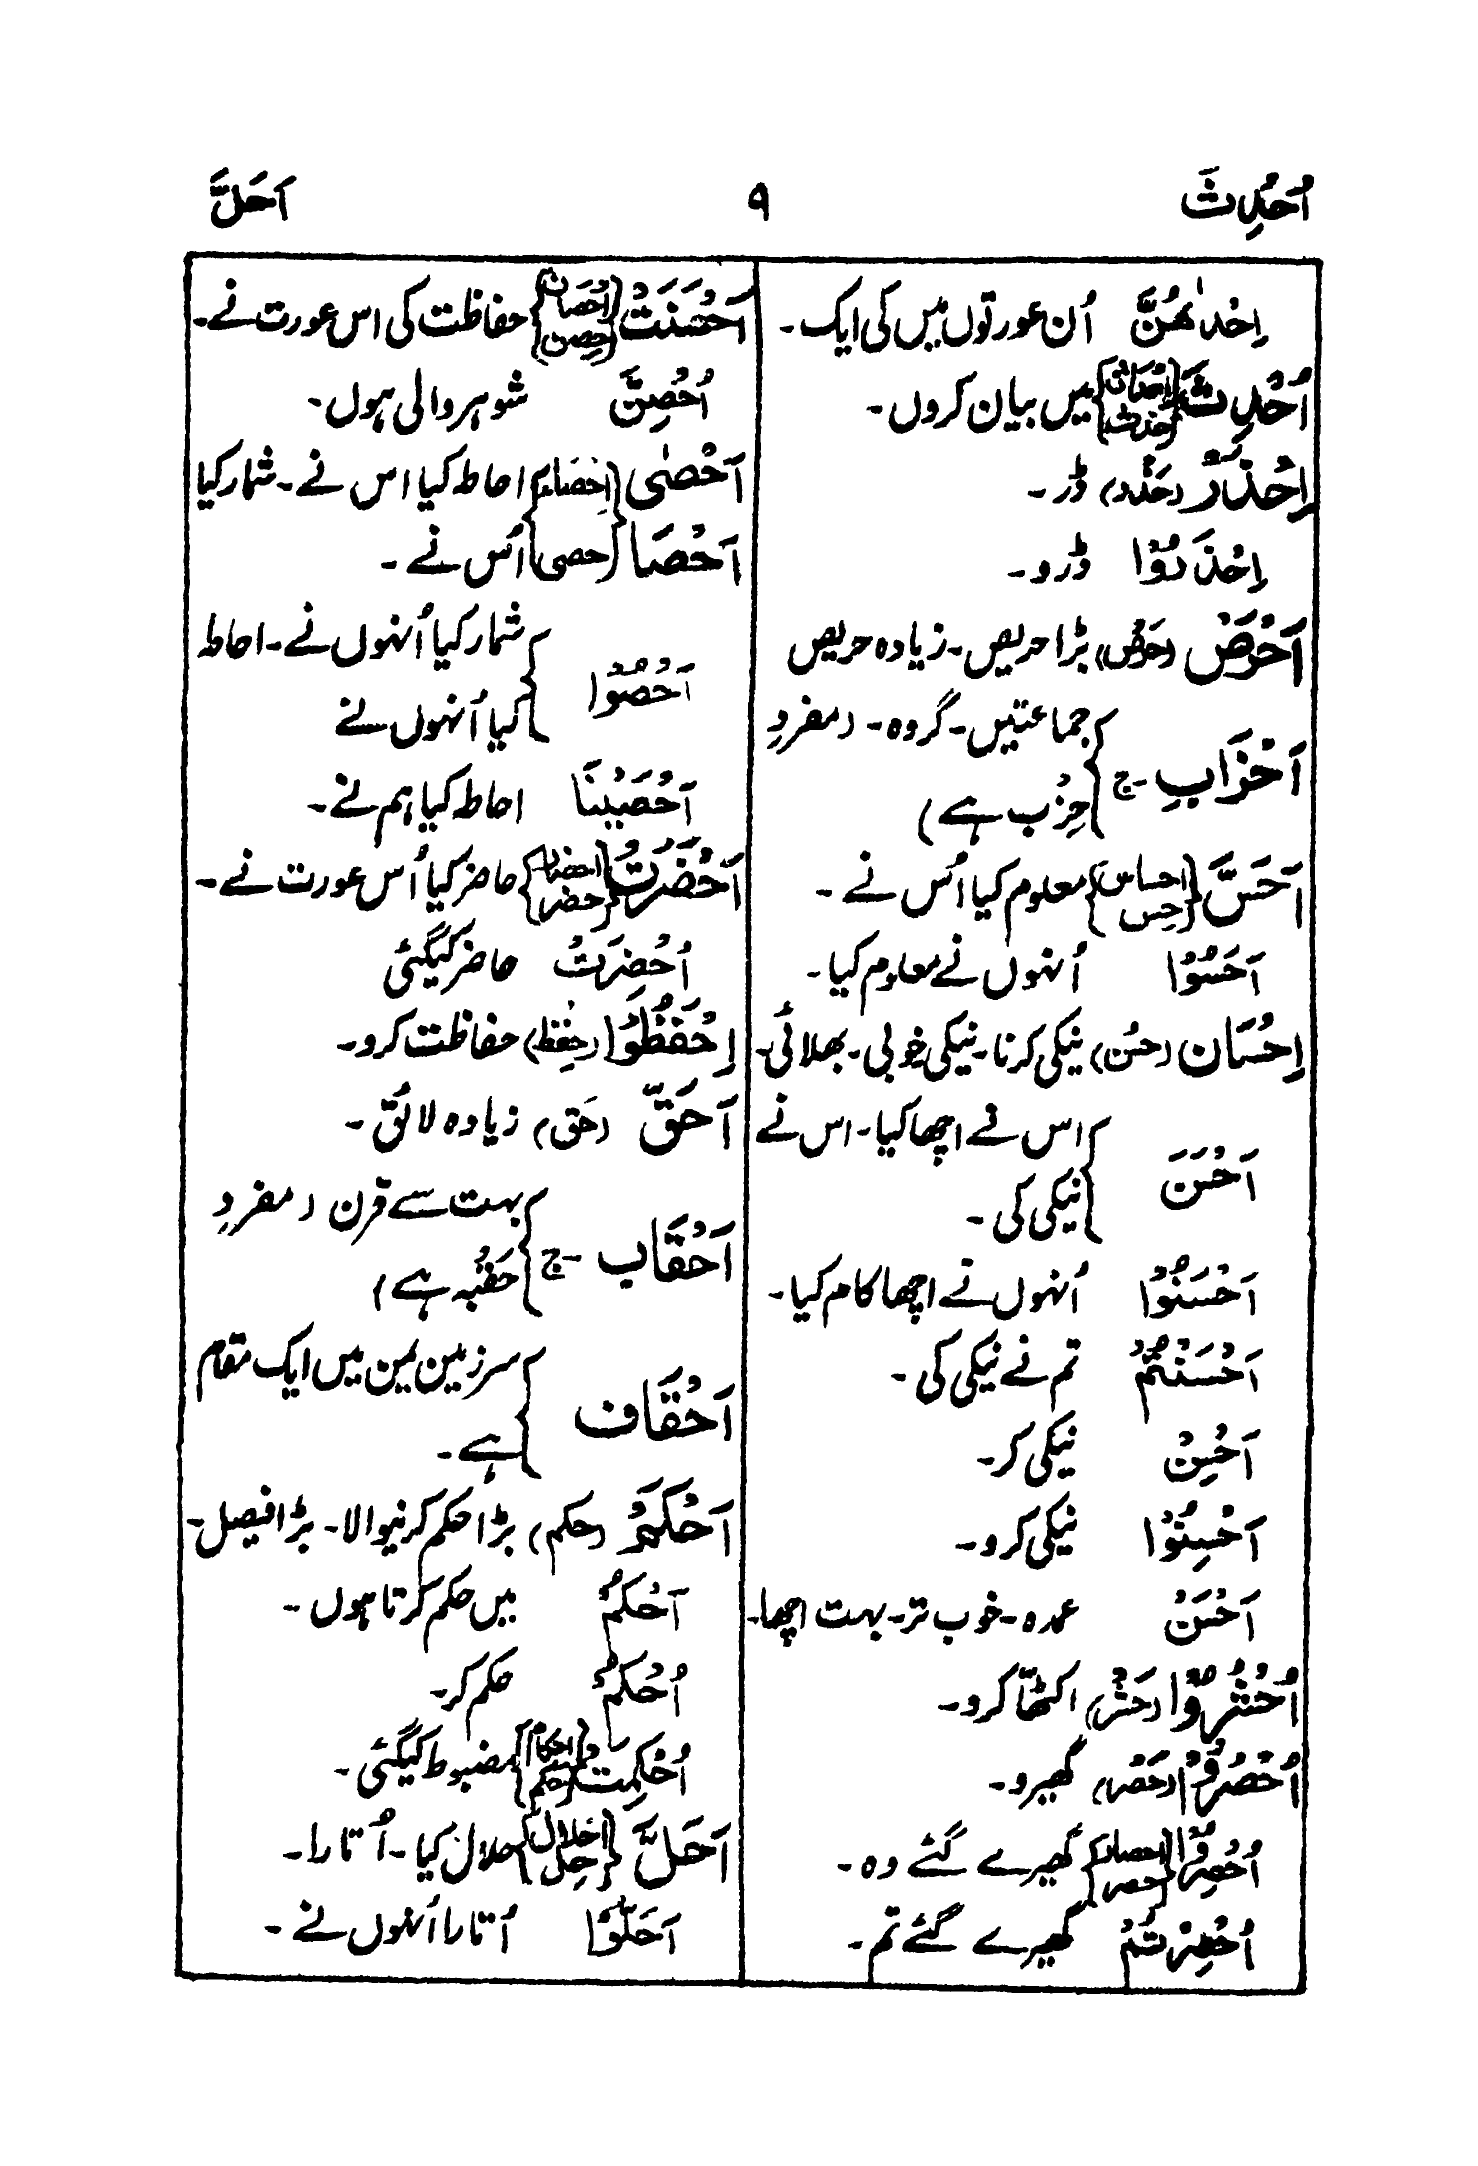 اُحْدِثَ ۹ اَحَلَّ
اِحْدٰھُنَّ اُن عورتوں میں کی ایک۔
اُحْدِثَ (اِحْدَاث) (حدث) میں بیان کروں۔
اِحْذَرْ (حَذَر) ڈر۔
اِحْذَرُوْا ڈرو۔
اَحْرَصَ (حَرْص) بڑا حریص۔ زیادہ حریص
اَحْزَابِ۔ ج جماعتیں۔ گروہ۔ (مفردِ
حِزْب ہے)
اَحَسَّ (احساس) (حِس) معلوم کیا اُس نے۔
اَحَسُّوْا اُنہوں نے معلوم کیا۔
اِحْسَان (حُسْن) نیکی کرنا۔ نیکی خوبی۔ بھلائی۔
اَحْسَنَ اس نے اچھا کیا۔ اس نے
نیکی کی۔
اَحْسَنُوْا اُنہوں نے اچھا کام کیا۔
اَحْسَنْتُمْ تم نے نیکی کی۔
اَحْسِنْ نیکی کر۔
اَحْسِنُوْا نیکی کرو۔
اَحْسَنُ عمدہ۔ خوب تر۔ بہت اچھا۔
اُحْشُرُوْا (حَشْر) اکٹھّا کرو۔
اُحْصُرُوْا (حَصْر) گھیرو۔
اُحْصِرُوْا (احصار) (حصر) گھیرے گئے وہ۔
اُحْصِرْتُمْ گھیرے گئے تم۔
اَحْصَنَتْ (اِحْصَان) (حِصن) حفاظت کی اس عورت نے۔
اُحْصِنَّ شوہر والی ہوں۔
اَحْصٰی (اِحْصَاء) احاطہ کیا اس نے۔ شمار کیا
اَحْصَا (حصی) اُس نے۔
اَحْصُوْا شمار کیا اُنہوں نے۔ احاطہ
کیا اُنہوں نے
اَحْصَیْنَا احاطہ کیا ہم نے۔
اَحْضَرَتْ (احضار) (حضر) حاضر کیا اُس عورت نے۔
اُحْضِرَتْ حاضر کیگئی
اِحْفَظُوْا (حِفْظ) حفاظت کرو۔
اَحَقّ (حَق) زیادہ لائق۔
اَحْقَاب۔ ج بہت سے قرن (مفردِ
حَقْبہ ہے)
اَحْقَاف سرزمین یمن میں ایک مقام
ہے۔
اَحْکَمُ (حکم) بڑا حکم کرنیوالا۔ بڑا فیصل۔
اَحْکُمُ میں حکم کرتا ہوں۔
اُحْکُمْ حکم کر۔
اُحْکِمَتْ (احکام) (حکم) مضبوط کیگئی۔
اَحَلَّ (اِحْلَال) (حِلّ) حلال کیا۔ اُتارا۔
اَحَلُّوْا اُتارا اُنہوں نے۔